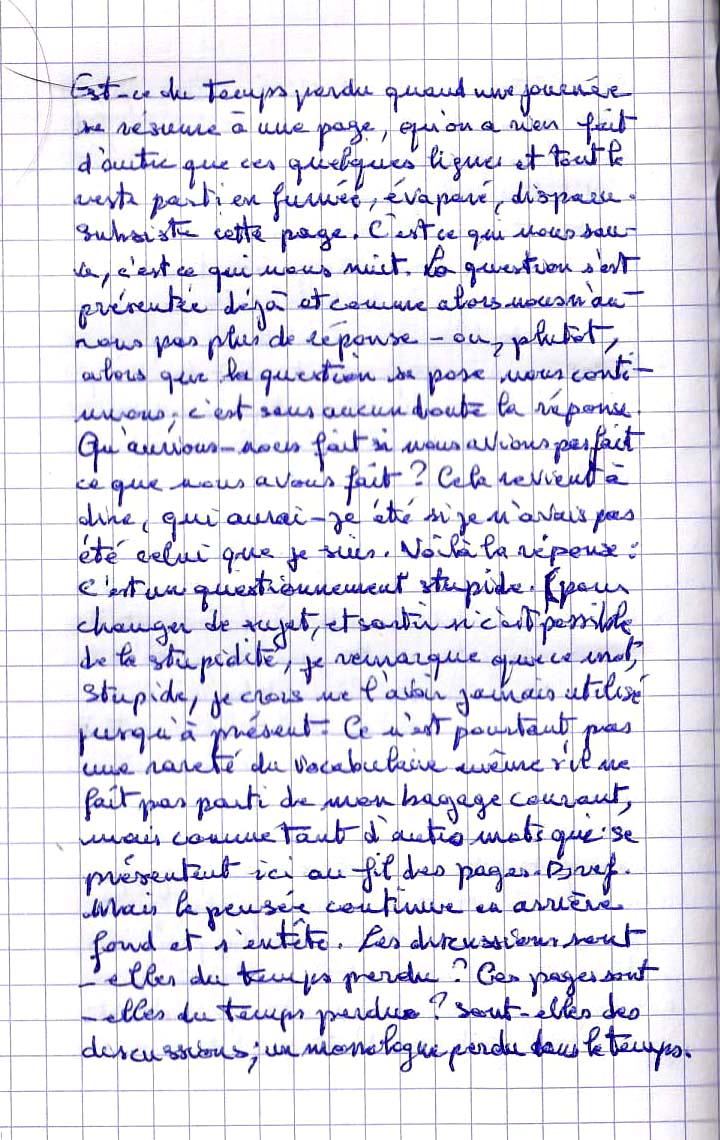 Est-ce du temps perdu quand une journée
se résume à une page, qu'on a rien fait
d'autre que ces quelques lignes et tout le
reste parti en fumée, évaporé, disparu.
Subsiste cette page. C'est ce qui nous sau-
ve, c'est ce qui nous nuit. La question s'est
présentée déjà et comme alors nous n'au-
rons pas plus de réponse - ou, plutôt,
alors que la question se pose nous conti-
nuons; c'est sans aucun doute la réponse.
Qu'aurions-nous fait si nous avions pas fait
ce que nous avons fait ? Cela revient à
dire, qui aurai-je été si je n'avais pas
été celui que je suis. Voilà la réponse :
c'est un questionnement stupide. (pour
changer de sujet, et sortir si c'est possible
de la stupidité, je remarque que ce mot,
stupide, je crois ne l'avoir jamais utilisé
jusqu'à présent. Ce n'est pourtant pas
une rareté du vocabulaire même s'il ne
fait pas parti de mon bagage courant,
mais comme tant d'autres mots qui se
présentent ici au fil des pages. Bref.
Mais la pensée continue en arrière
fond et s'entête. Les discussions sont
-elles du temps perdu ? Ces pages sont
-elles du temps perdu ? Sont-elles des
discussions; un monologue perdu dans le temps.